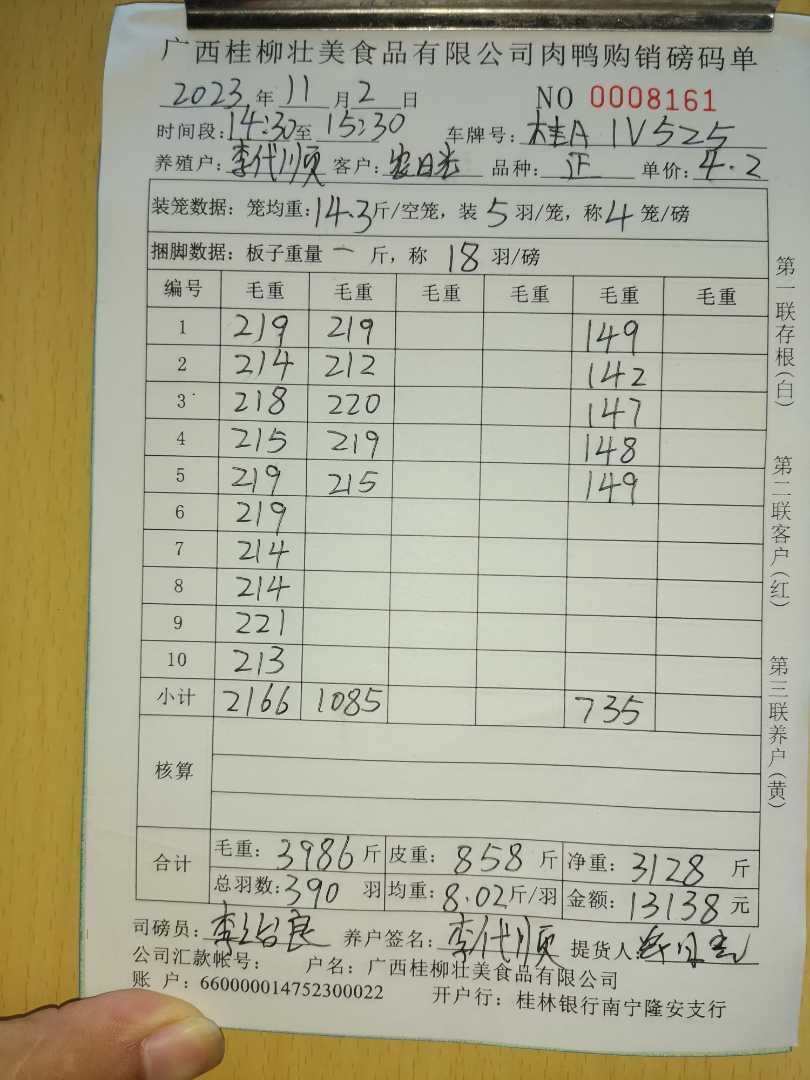 广西桂柳壮美食品有限公司肉鸭购销磅码单
2023年11月2日 NO 0008161
时间段:14:30至15:30 车牌号:桂A 1V525
养殖户:李代顺 客户: 品种:正 单价:4.2
装笼数据:笼均重:14.3斤/空笼,装5羽/笼,称4笼/磅
捆脚数据:板子重量一斤,称18羽/磅
编号 毛重 毛重 毛重 毛重 毛重 毛重
1 219 219 149
2 214 212 142
3 218 220 147
4 215 219 148
5 219 215 149
6 219
7 214
8 214
9 221
10 213
小计 2166 1085 735
核算
合计 毛重:3986斤 皮重:858斤 净重:3128斤
总羽数:390羽 均重:8.02斤/羽 金额:13138元
司磅员: 养户签名:李代顺 提货人
公司汇款帐号: 户名:广西桂柳壮美食品有限公司
账 户:660000014752300022 开户行:桂林银行南宁隆安支行
第一联存根(白)
第二联客户(红)
第三联养户(黄)